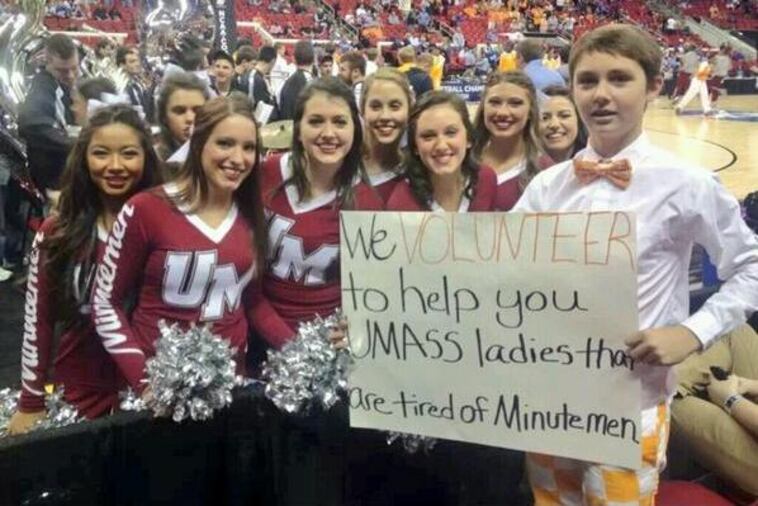 We VOLUNTEER
to help you
UMASS ladies that
are tired of Minutemen
Minutemen
Minutemen
UM
UM